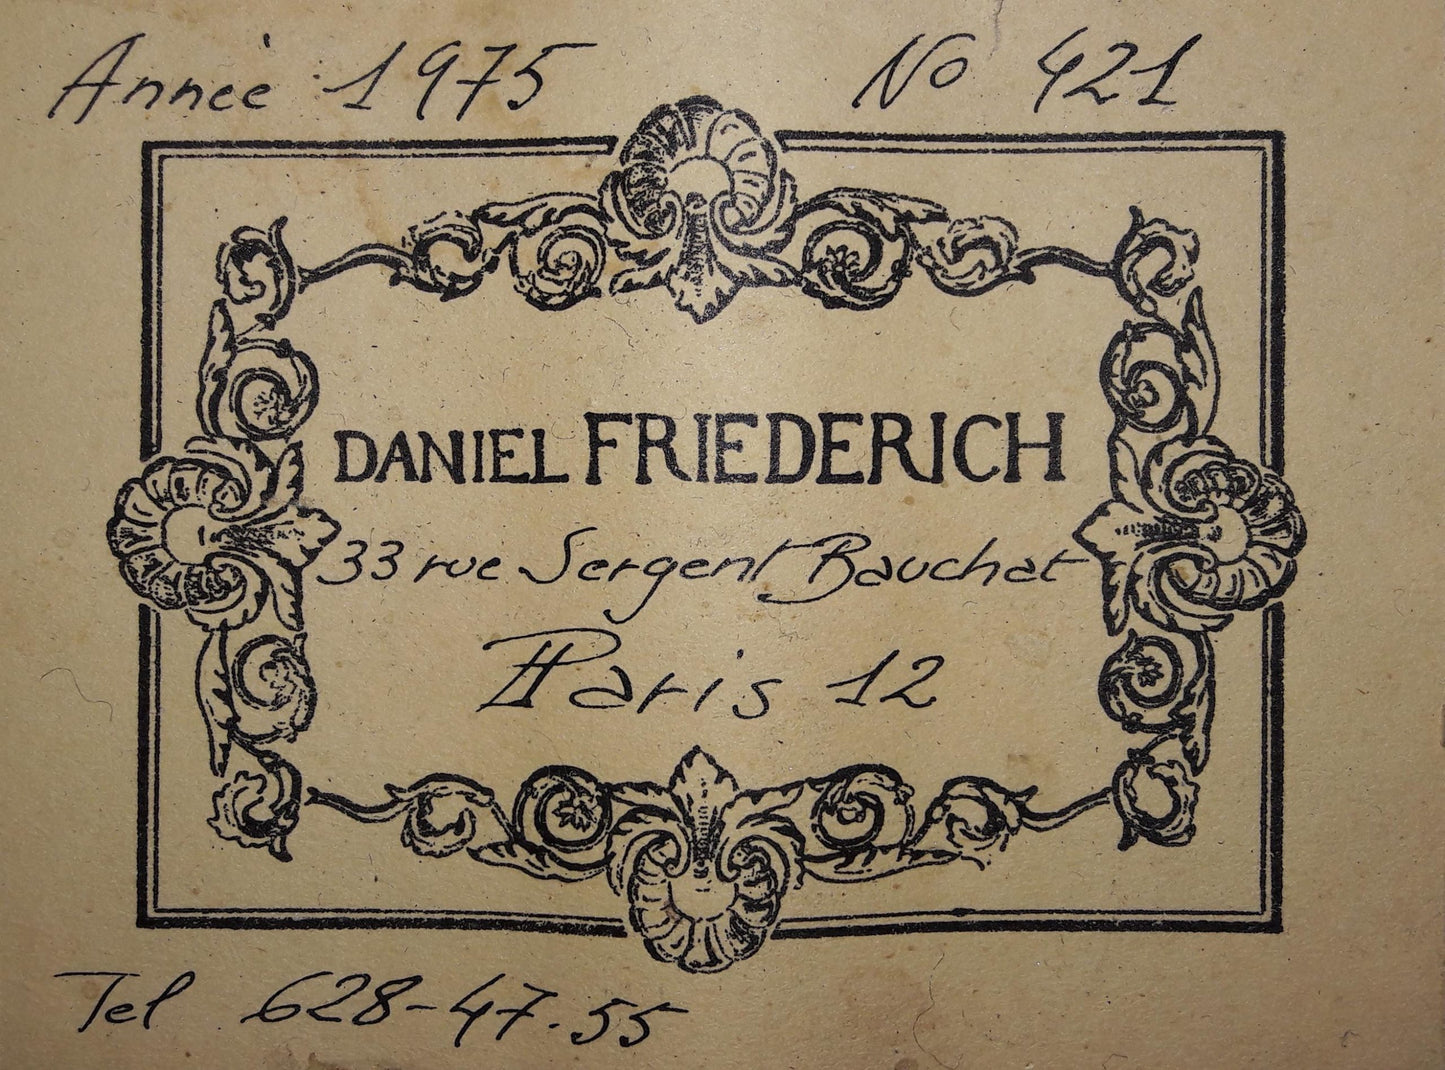 Anneè 1975 No 421
DANIEL FRIEDERICH
33 rue Sergent Bauchat
Paris 12
Tel 628-47.55